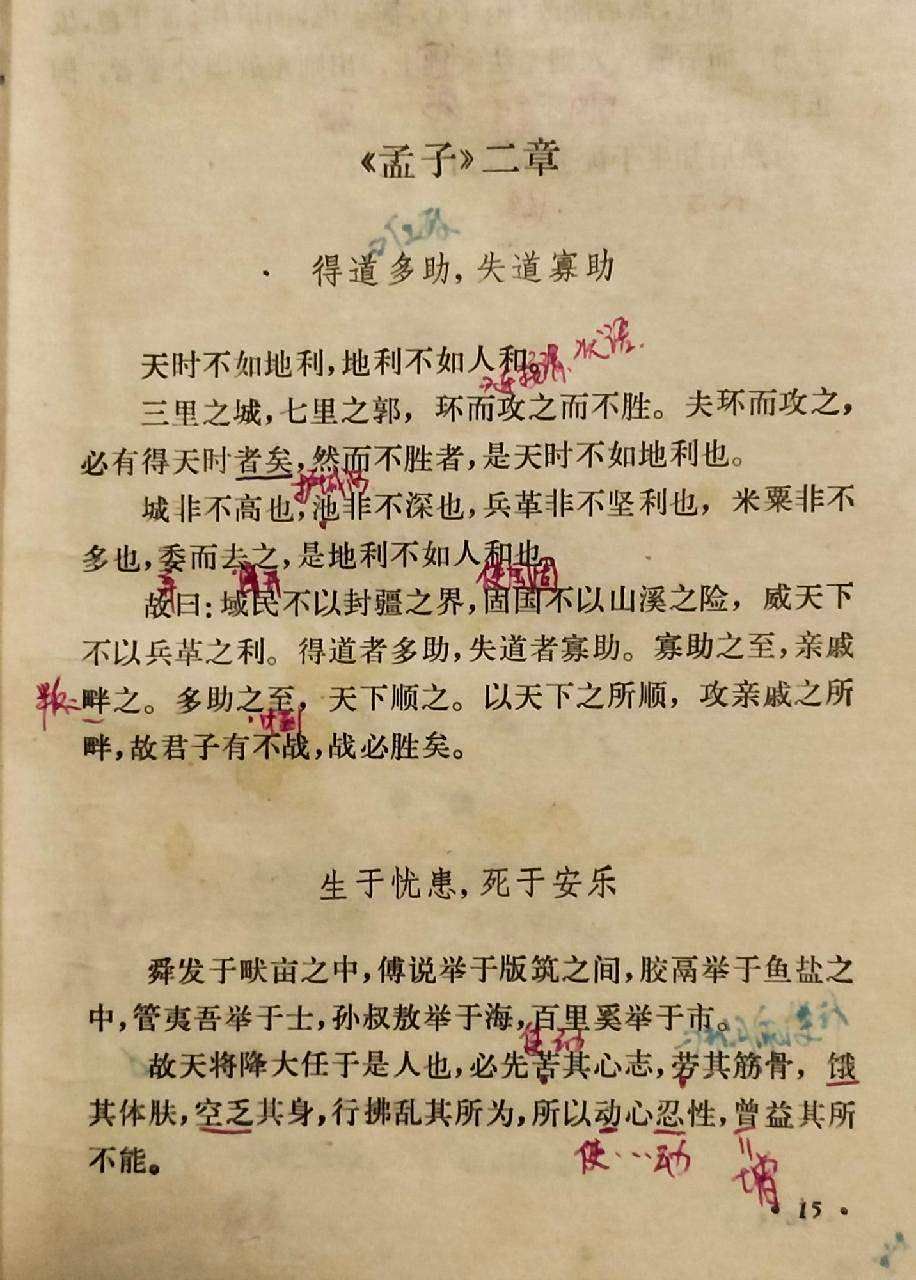 《孟子》二章
得道多助，失道寡助
天时不如地利，地利不如人和。
状语
三里之城，七里之郭，环而攻之而不胜。夫环而攻之，
必有得天时者矣，然而不胜者，是天时不如地利也。
护城河
城非不高也，池非不深也，兵革非不坚利也，米粟非不
多也，委而去之，是地利不如人和也。
弃 离开 使巩固
故曰：域民不以封疆之界，固国不以山溪之险，威天下
不以兵革之利。得道者多助，失道者寡助。寡助之至，亲戚
叛 畔之。多助之至，天下顺之。以天下之所顺，攻亲戚之所
畔，故君子有不战，战必胜矣。
生于忧患，死于安乐
舜发于畎亩之中，傅说举于版筑之间，胶鬲举于鱼盐之
中，管夷吾举于士，孙叔敖举于海，百里奚举于市。
使动
故天将降大任于是人也，必先苦其心志，劳其筋骨，饿
其体肤，空乏其身，行拂乱其所为，所以动心忍性，曾益其所
不能。
使……动
=增
·15·